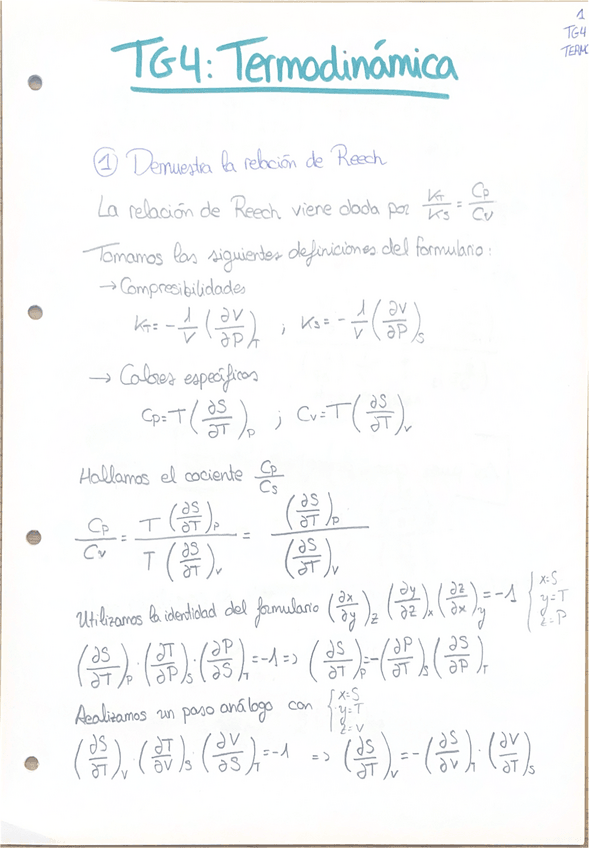 1
TG4
TERMO
TG4: Termodinámica
① Demuestra la relación de Reech
La relación de Reech viene dada por K_T/K_S = C_P/C_V
Tomamos las siguientes definiciones del formulario:
→ Compresibilidades
K_T = -1/V (∂V/∂P)_T ; K_S = -1/V (∂V/∂P)_S
→ Calores específicos
C_P = T(∂S/∂T)_P ; C_V = T(∂S/∂T)_V
Hallamos el cociente C_P/C_S
C_P/C_V = T(∂S/∂T)_P / T(∂S/∂T)_V = (∂S/∂T)_P / (∂S/∂T)_V
Utilizamos la identidad del formulario (∂x/∂y)_z (∂y/∂z)_x (∂z/∂x)_y = -1 { x=S y=T z=P
(∂S/∂T)_P · (∂T/∂P)_S · (∂P/∂S)_T = -1 => (∂S/∂T)_P = -(∂P/∂T)_S (∂S/∂P)_T
Realizamos un paso análogo con { x=S y=T z=V
(∂S/∂T)_V · (∂T/∂V)_S · (∂V/∂S)_T = -1 => (∂S/∂T)_V = -(∂S/∂V)_T · (∂V/∂T)_S